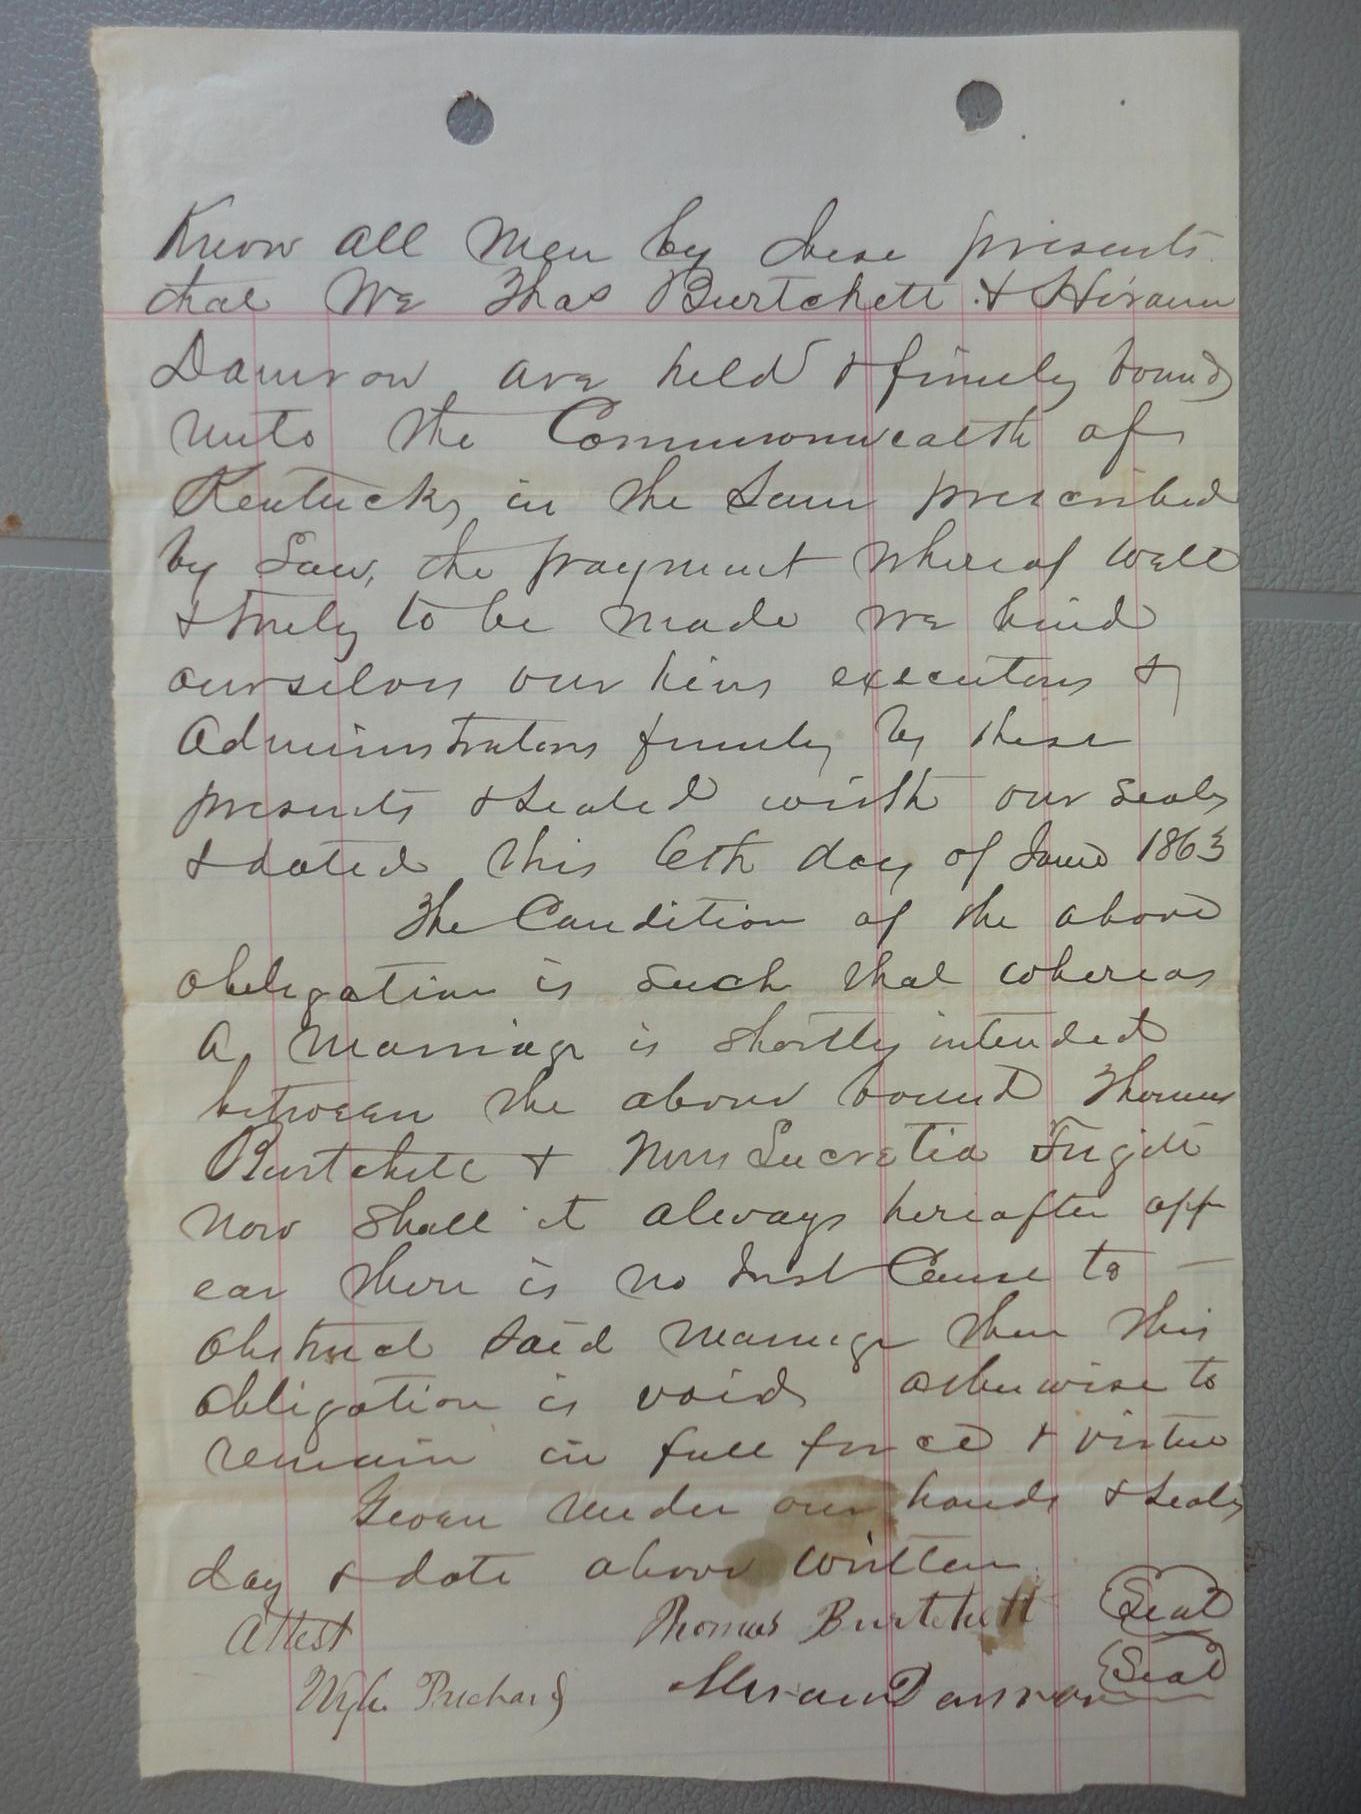 Know all Men by these presents
that We Thos Burtchett & Hiram
Damron are held & firmly bound
unto the Commonwealth of
Kentucky in the Sum prescribed
by Law, the payment whereof well
& truly to be made we bind
ourselves our heirs executors &
Administrators firmly by these
presents & sealed with our seals
& dated this 6th day of June 1863
The Condition of the above
obligation is such that whereas
A Marriage is shortly intended
between the above bound Thomas
Burtchett & Lucretia
now shall it always hereafter app
ear there is no Just Cause to —
obstruct said marriage then this
obligation is void otherwise to
remain in full force & virtue
Given under our hands & seals
day & date above written
Attest Thomas Burtchett Seal
Prichard Hiram Damron Seal